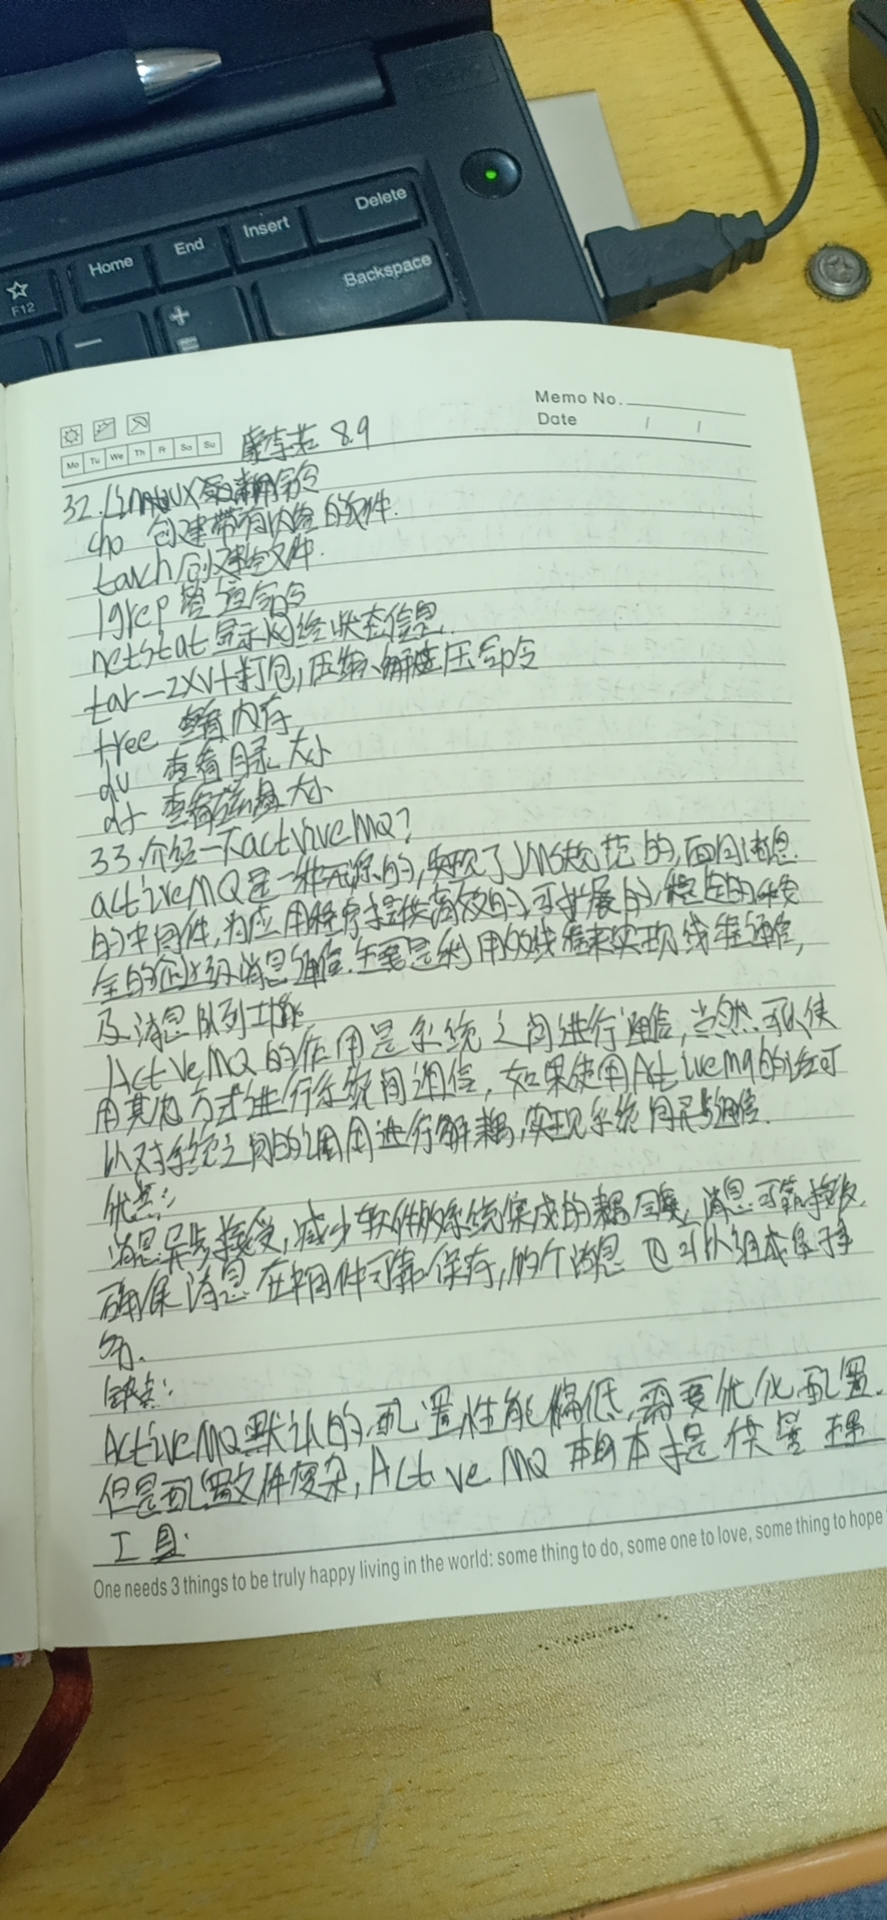 Delete
Insert
End
Home
F12
Backspace
Memo No.
Date / /
Mo Tu We Th Fr Sa Su
8.9
32. 常用命令
创建带有内容的文件.
创建空文件.
管道命令
netstat 显示网络状态信息.
tar-zxvf打包,压缩、解压命令
free 查看内存
du 查看目录大小
df 查看磁盘大小
33.介绍一下activiveMQ?
activeMQ是一种开源的,实现了JMS规范的,面向消息
的中间件,为应用程序提供高效的,可扩展的,稳定的安
全的企业级消息通信.主要是利用线程来实现线程通信,
及消息队列功能
ActiveMQ的作用是系统之间进行通信,当然可以使
用其他方式进行系统间通信,如果使用ActiveMq的话可
以对系统之间的调用进行解耦,实现系统间异步通信.
优点:
消息异步接受,减少软件的系统集成的耦合度,消息可靠接收,
确保消息在中间件可靠保存,的个消息也可以组成原子事
务.
缺点:
ActiveMQ默认的配置性能偏低,需要优化配置.
但是配置文件复杂,ActiveMQ本身本提供管理
工具.
One needs 3 things to be truly happy living in the world: some thing to do, some one to love, some thing to hope